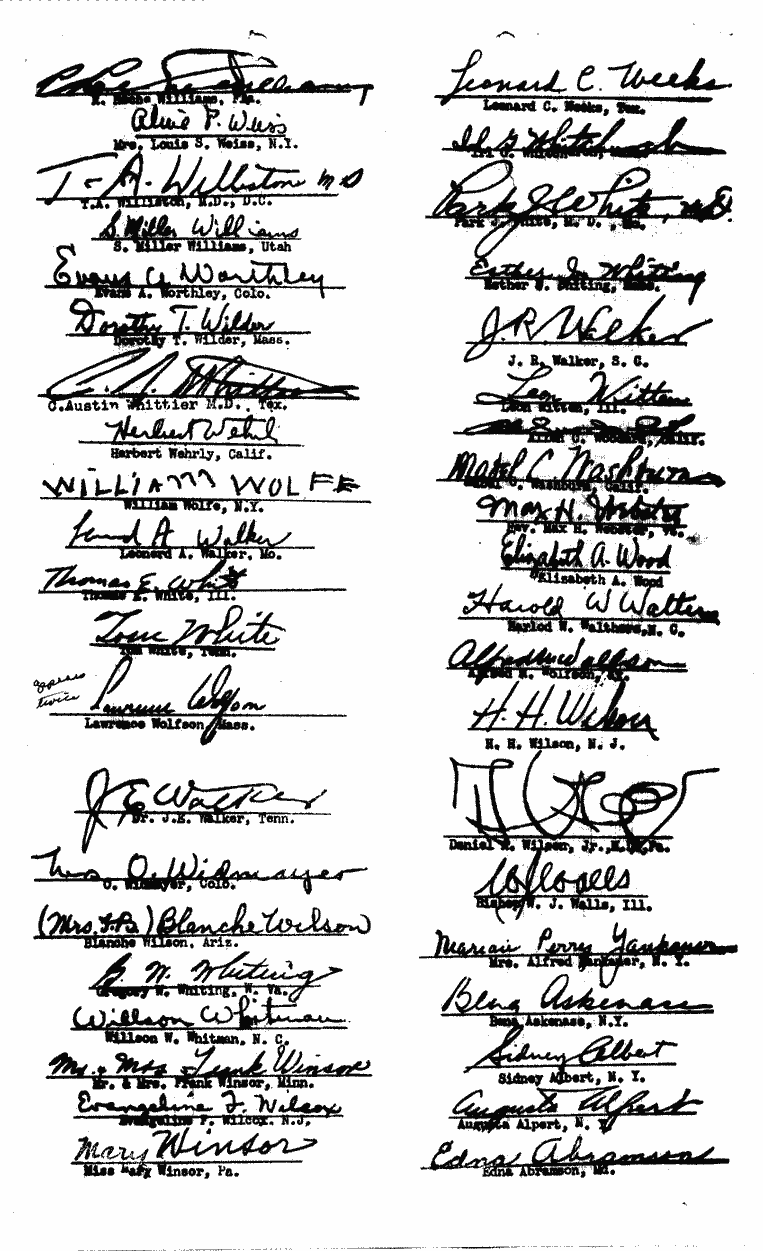 Williams, Pa.
Alice P. Weiss
Mrs. Louis S. Weiss, N.Y.
T. A. Williston MD
T.A. Williston, M.D., D.C.
S. Miller Williams
S. Miller Williams, Utah
Evans A Worthley
Evans A. Worthley, Colo.
Dorothy T. Wilder
Dorothy T. Wilder, Mass.
C.Austin Whittier M.D., Tex.
Herbert Wehrl
Herbert Wehrly, Calif.
WiLLiAM WOLFE
William Wolfe, N.Y.
Leonard A Walker
Leonard A. Walker, Mo.
Thomas E. White
Thomas E. White, Ill.
Tom White
Tom White, Tenn.
appears
twice
Lawrence Wolfson
Lawrence Wolfson, Mass.
J E Walker
Dr. J.E. Walker, Tenn.
O. Widmayer
O. Widmayer, Colo.
(Mrs. F.B.) Blanche Wilson
Blanche Wilson, Ariz.
G. W. Whiting
Gregory W. Whiting, W. Va.
Willson Whitman
Willson W. Whitman, N. C.
Mr. & Mrs Frank Winsor
Mr. & Mrs. Frank Winsor, Minn.
Evangeline F. Wilcox
Evangeline F. Wilcox. N.J.
Mary Winsor
Miss Mary Winsor, Pa.
Leonard C. Weeks
Leonard C. Weeks, Tex.
Park J. White, M.D.
Park J. White, M. D., Mo.
Esther J. Whiting
Esther J. Whiting, Mass.
J. R. Walker
J. R. Walker, S. C.
Leon Witten
Leon Witten, Ill.
Woodard, Calif.
Mabel C Washburn
Mabel C. Washburn, Calif.
Max H. Webster
Rev. Max H. Webster, Vt.
Elizabeth A. Wood
Elizabeth A. Wood
Harold W Walters
Harlod W. Walthers, N. C.
Alfred M. Wolfson
Alfred M. Wolfson, Ky.
H. H. Wilson
H. H. Wilson, N. J.
Daniel Wilson, Jr., Pa.
W J Walls
Bishop W. J. Walls, Ill.
Marian Perry Yankauer
Mrs. Alfred Yankauer, N. Y.
Bena Askenase
Bena Askenase, N.Y.
Sidney Albert
Sidney Albert, N. Y.
Augusta Alpert
Augusta Alpert, N. Y.
Edna Abramson
Edna Abramson, Mi.